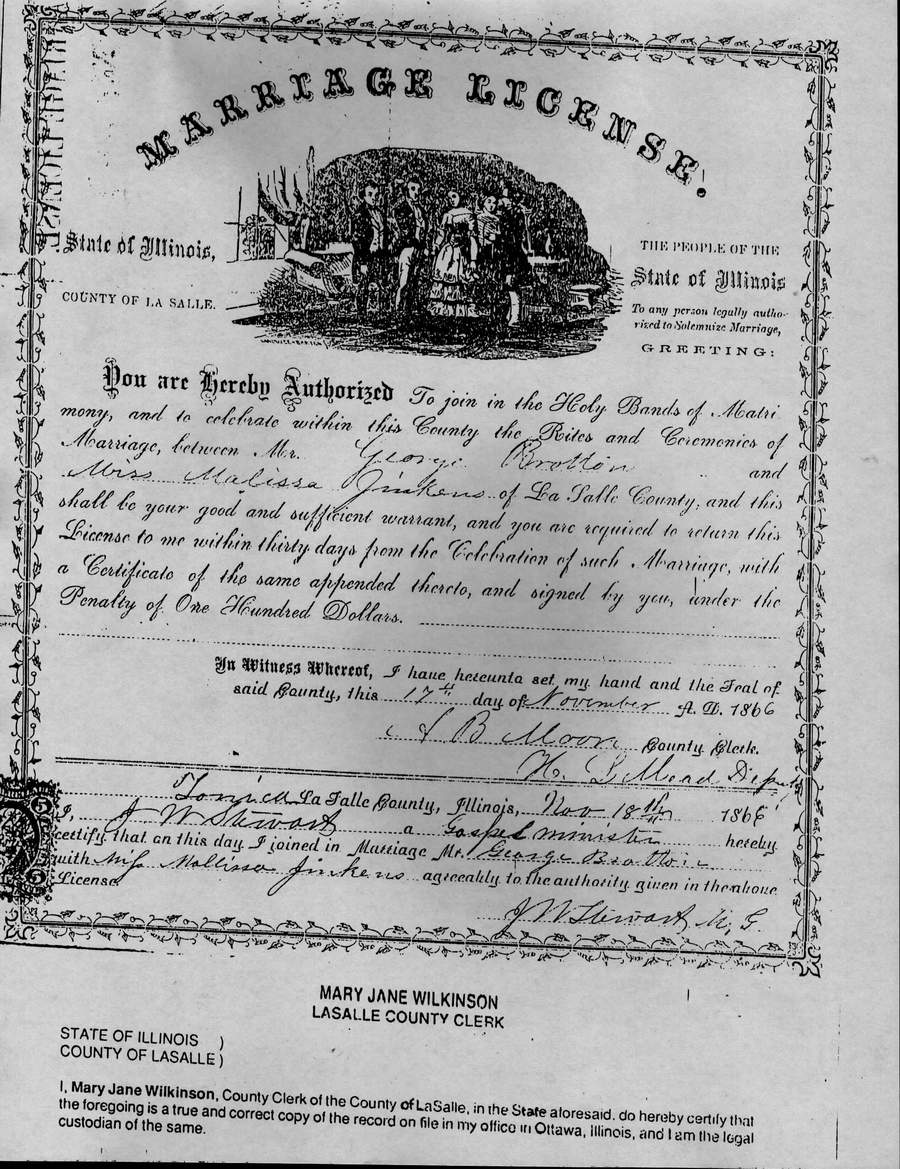 MARRIAGE LICENSE.
State of Illinois,
COUNTY OF LA SALLE.
THE PEOPLE OF THE
State of Illinois
To any person legally autho-
rized to Solemnize Marriage,
GREETING:
You are Hereby Authorized To join in the Holy Bands of Matri
mony, and to celebrate within this County the Rites and Ceremonies of
Marriage, between Mr. George Brotton and
Miss Malissa Jinkens of La Salle County, and this
shall be your good and sufficient warrant, and you are required to return this
License to me within thirty days from the Celebration of such Marriage, with
a Certificate of the same appended thereto, and signed by you, under the
Penalty of One Hundred Dollars.
In Witness Whereof, I have hereunto set my hand and the Seal of
said County, this 17th day of November A. D. 1866
S B Moore County Clerk.
H. L Mead Dep
La Salle County, Illinois, Nov 18th 1866
I, J W Stewart a Gospel minister hereby
certify that on this day I joined in Marriage Mr. George Brotton
with Miss Mallissa Jinkens agreeably to the authority given in the above
License
J W Stewart M, G.
5
5
MARY JANE WILKINSON
LASALLE COUNTY CLERK
STATE OF ILLINOIS )
COUNTY OF LASALLE )
I, Mary Jane Wilkinson, County Clerk of the County of LaSalle, in the State aforesaid, do hereby certify that
the foregoing is a true and correct copy of the record on file in my office in Ottawa, Illinois, and I am the legal
custodian of the same.